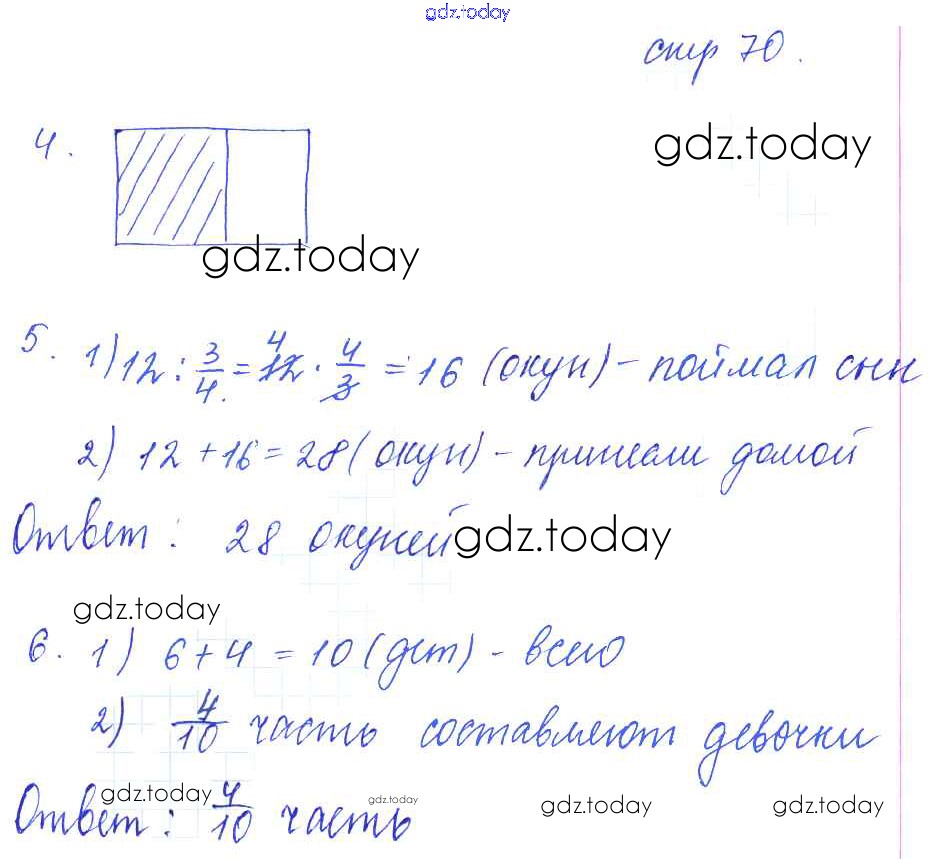 gdz.today
стр 70.
4.
gdz.today
gdz.today
5. 1) 12 : 3/4 = 12 4 · 4/3 = 16 (окун) - поймал сын
2) 12 + 16 = 28 (окун) - принесли домой
Ответ: 28 окуней
gdz.today
gdz.today
6. 1) 6 + 4 = 10 (дет) - всего
2) 4/10 часть составляют девочки
gdz.today gdz.today gdz.today gdz.today
Ответ: 4/10 часть